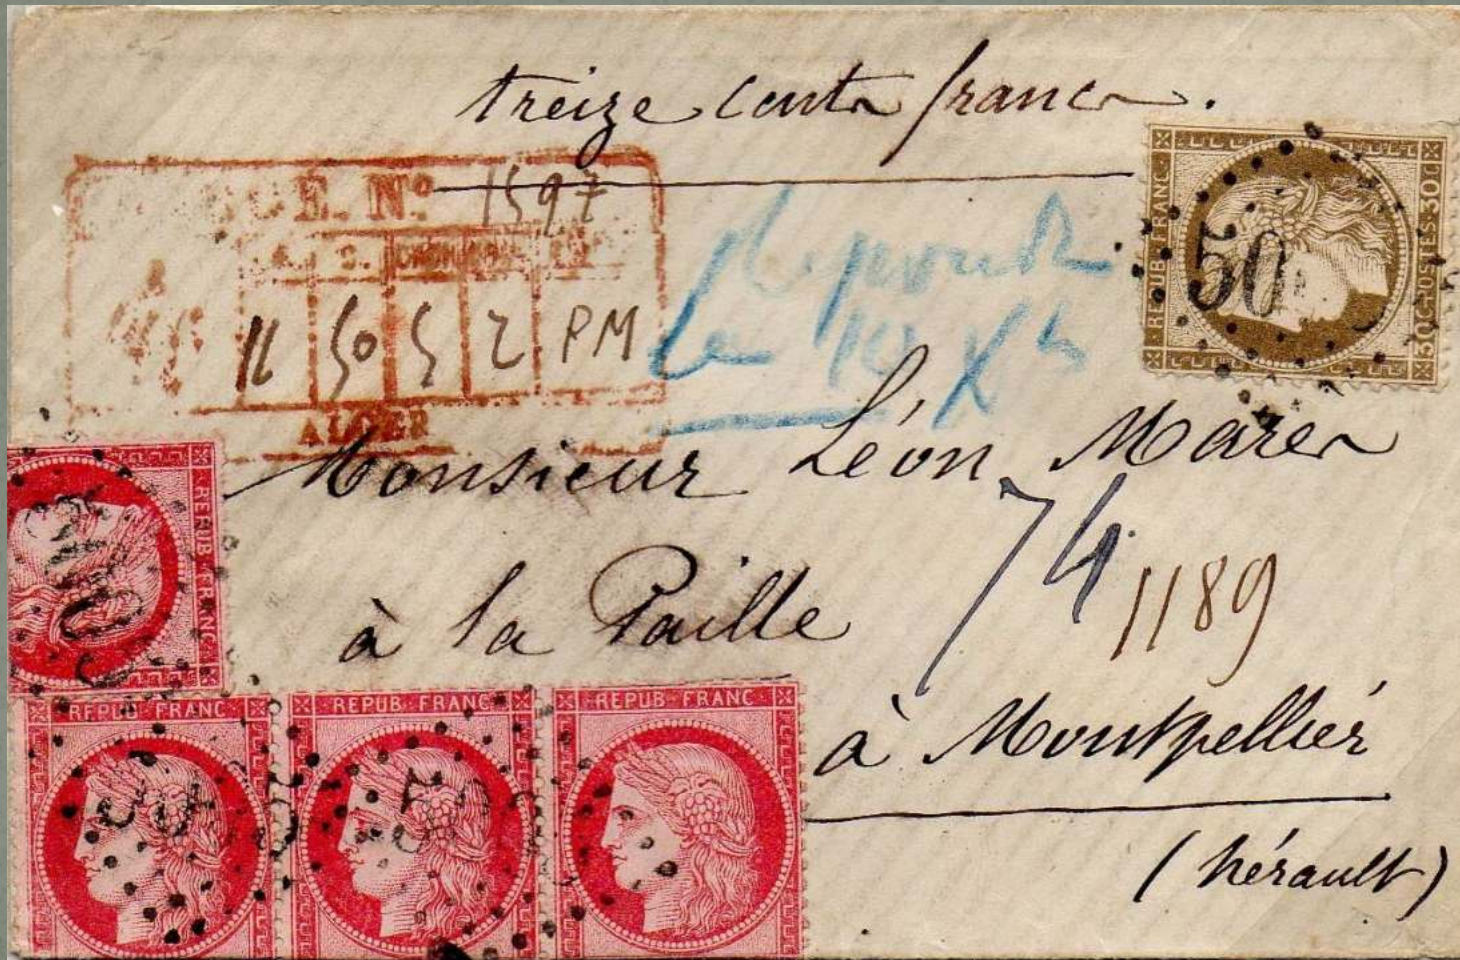 treize cents francs.
GÉ. Nº 1597
11 50 5 2 PM
ALGER
Répondu
le 10 Xb
REPUB. FRANC.
30C. POSTES. 30C
50
Monsieur Léon Marès
74
1189
à la Paille
à Montpellier
(hérault)
REPUB. FRANC.
REPUB. FRANC.
REPUB. FRANC.
REPUB. FRANC.